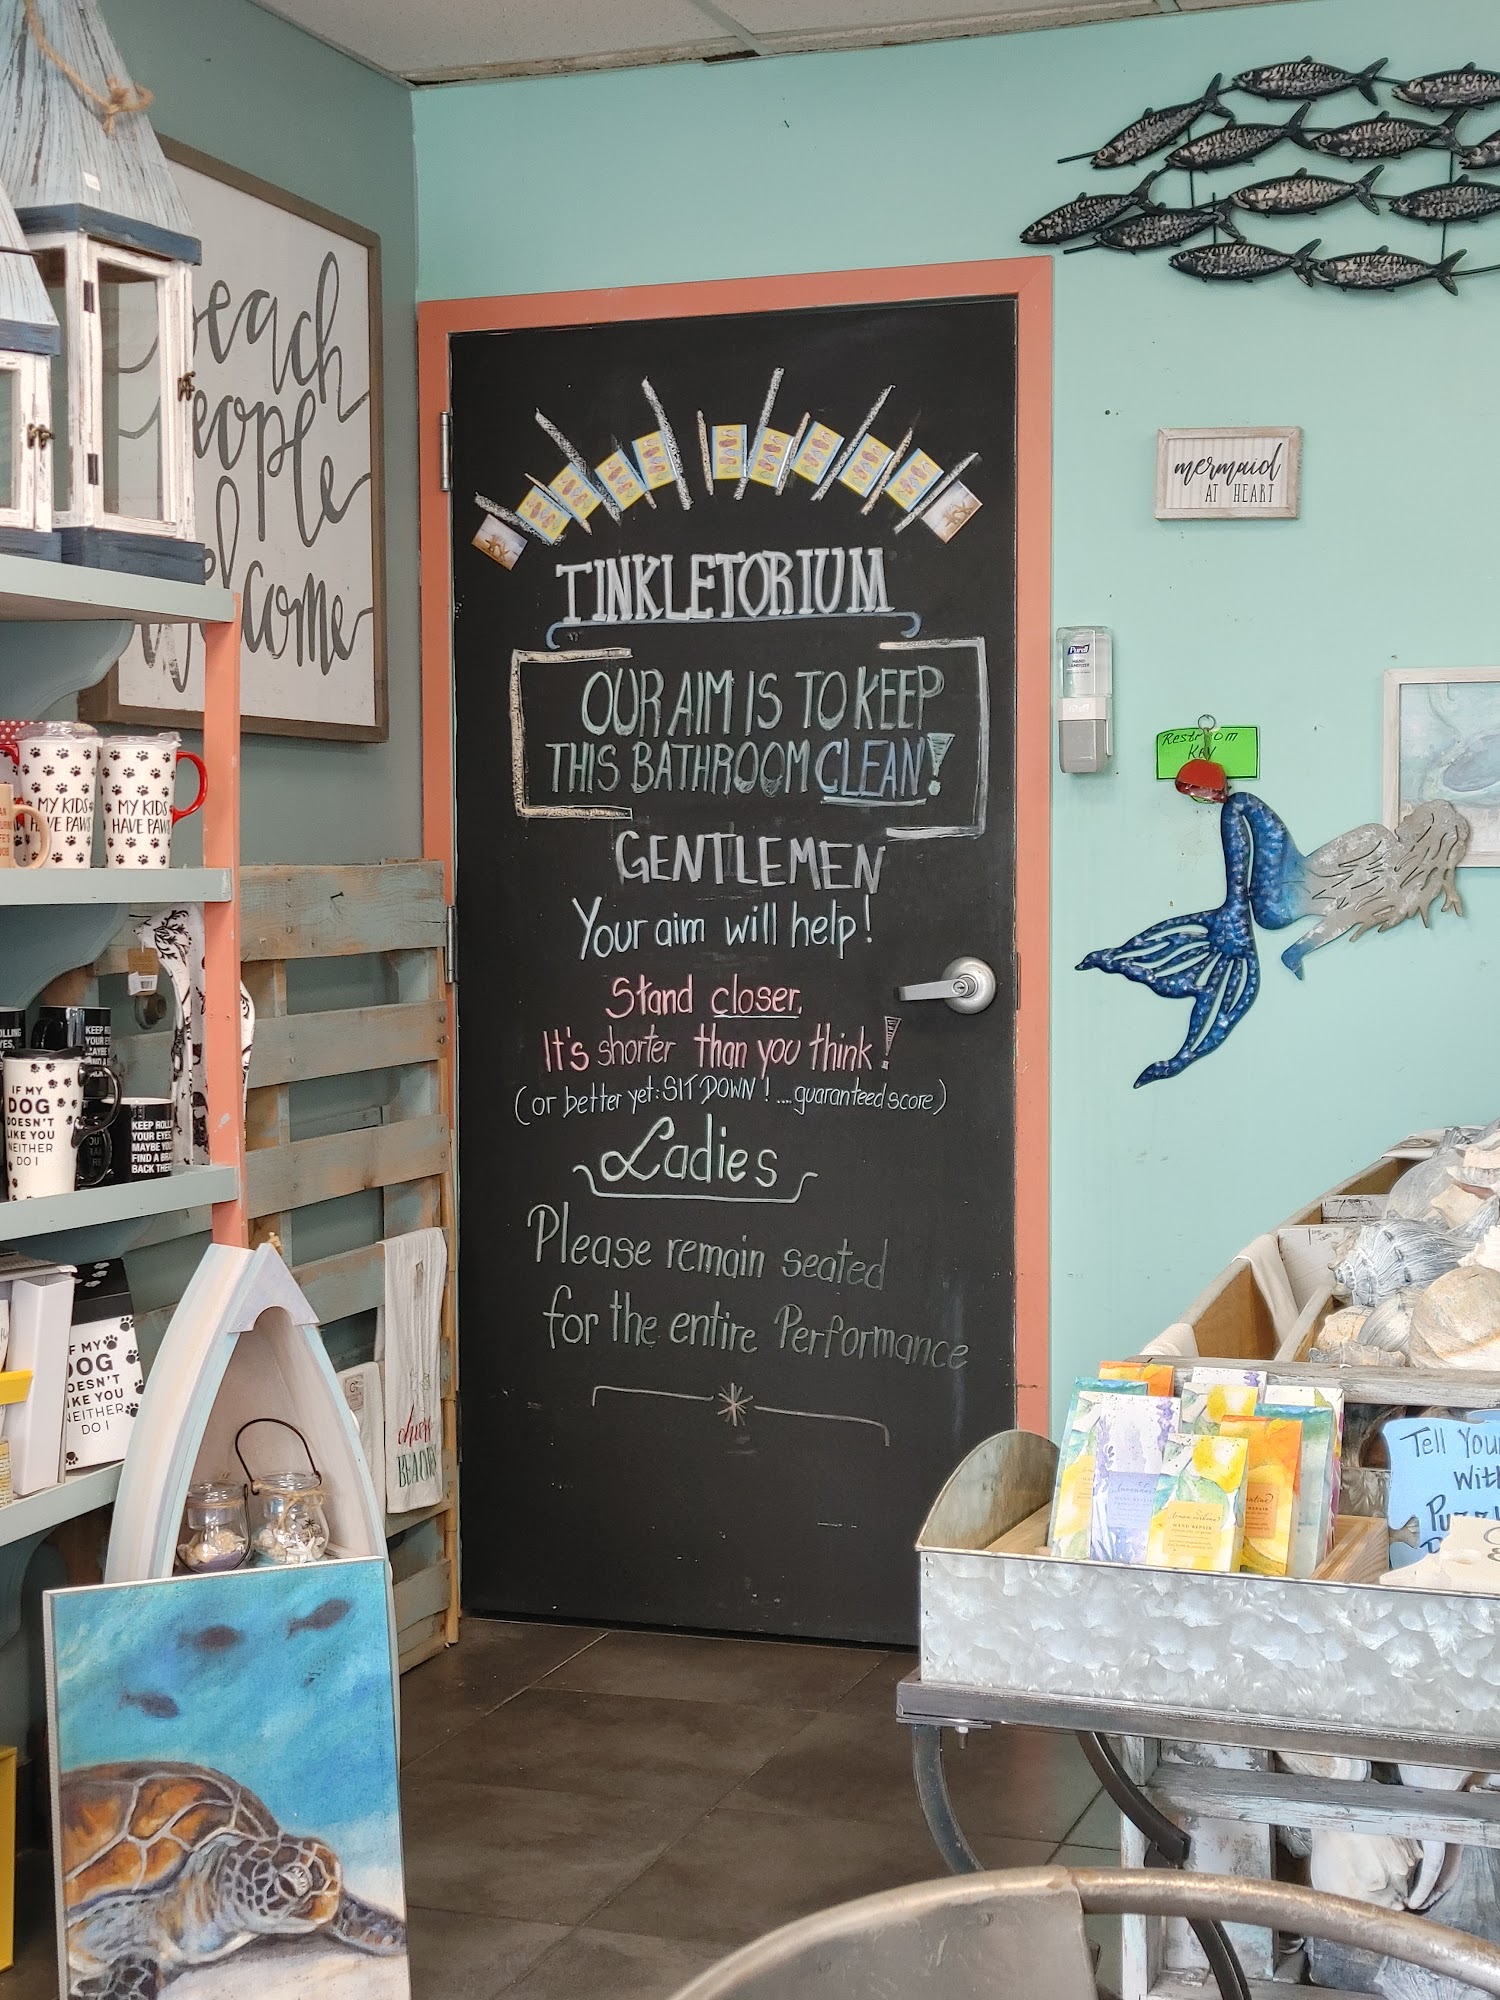 beach
people
welcome
TINKLETORIUM
OUR AIM IS TO KEEP
THIS BATHROOM CLEAN!
GENTLEMEN
Your aim will help!
Stand closer.
It's shorter than you think!
(or better yet: SIT DOWN! .... guaranteed score)
Ladies
Please remain seated
for the entire Performance
mermaid
AT HEART
Purell
HAND
SANITIZER
Restroom
Key
MY KIDS
HAVE PAWS
MY KIDS
HAVE PAWS
IF MY
DOG
DOESN'T
LIKE YOU
NEITHER
DO I
KEEP ROLLING
YOUR EYES,
MAYBE YOU'LL
FIND A BRAIN
BACK THERE
IF MY
DOG
DOESN'T
LIKE YOU
NEITHER
DO I
BEACHES
lavender
HAND REPAIR
lemon verbena
HAND REPAIR
Tell Your
With